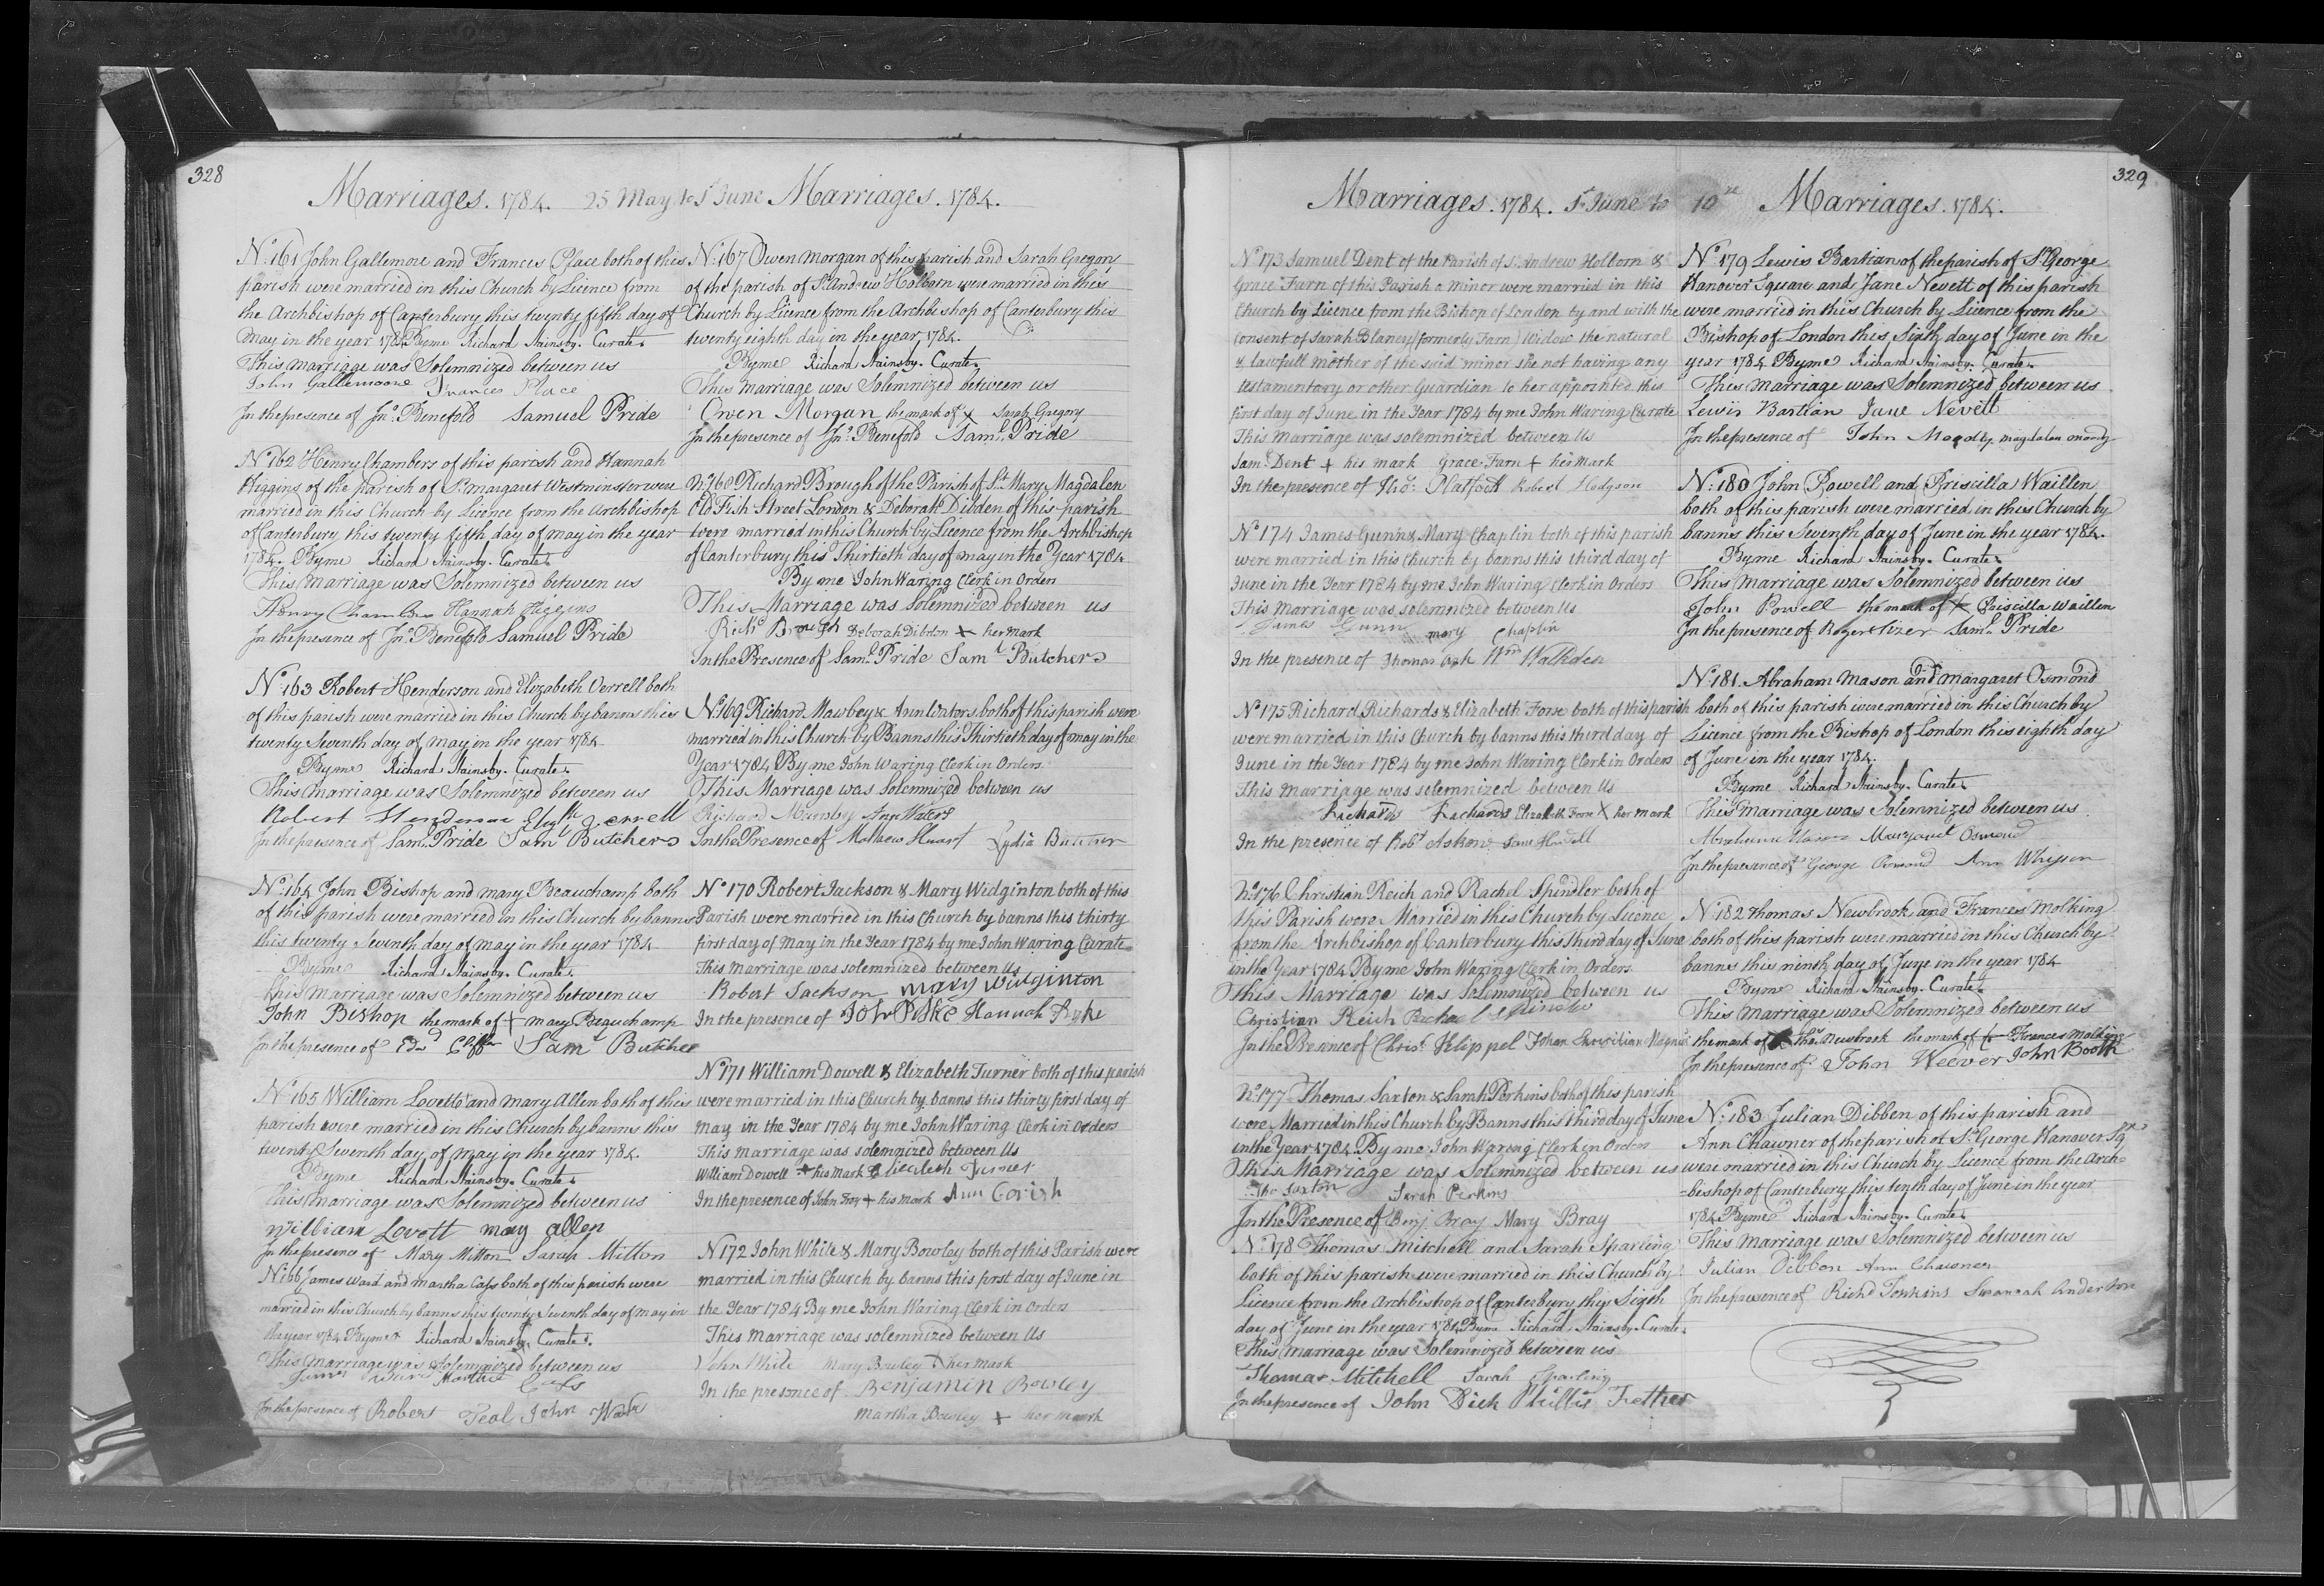 328
Marriages. 1784. 25 May to 1st June Marriages. 1784.
No. 161 John Gallemore and Frances Place both of this
parish were married in this Church by Licence from
the Archbishop of Canterbury this twenty fifth day of
May in the year 1784 By me Richard Stainsby. Curate.
This marriage was Solemnized between us
John Gallemoore Frances Place
In the presence of Jno. Benefold Samuel Pride
No. 162 Henry Chambers of this parish and Hannah
Higgins of the parish of St. Margaret Westminster were
married in this Church by Licence from the Archbishop
of Canterbury this twenty fifth day of May in the year
1784. By me Richard Stainsby. Curate.
This Marriage was Solemnized between us
Henry Chambers Hannah Higgins
In the presence of Jno. Benefold Samuel Pride
No. 163 Robert Henderson and Elizabeth Verrell both
of this parish were married in this Church by banns this
twenty Seventh day of May in the year 1784
By me Richard Stainsby. Curate.
This Marriage was Solemnized between us
Robert Henderson Elizth Verrell
In the presence of Saml. Pride Saml Butcher
No. 164 John Bishop and Mary Beauchamp both
of this parish were married in this Church by banns
this twenty Seventh day of May in the year 1784
By me Richard Stainsby. Curate.
This Marriage was Solemnized between us
John Bishop the mark of + Mary Beauchamp
In the presence of Edwd Saml Butcher
No. 165 William Lovett and Mary Allen both of this
parish were married in this Church by banns this
twenty Seventh day of May in the year 1784.
By me Richard Stainsby. Curate.
This Marriage was Solemnized between us
William Lovett mary allen
In the presence of Mary Mitton Sarah Mitton
No 166 James Ward and Martha Cass both of this parish were
married in this Church by banns this twenty Seventh day of May in
the year 1784 By me Richard Stainsby. Curate.
This Marriage was Solemnized between us
James Ward Martha Cass
In the presence of Robert Teal John Wade
No. 167 Owen Morgan of this parish and Sarah Gregory
of the parish of St. Andrew Holborn were married in this
Church by Licence from the Archbishop of Canterbury this
twenty eighth day in the year 1784.
By me Richard Stainsby. Curate.
This Marriage was Solemnized between us
Owen Morgan the mark of x Sarah Gregory
In the presence of Jno. Benefold Saml. Pride
No. 168 Richard Brough of the Parish of St. Mary Magdalen
Old Fish Street London & Deborah Dibden of this parish
were married in this Church by Licence from the Archbishop
of Canterbury this Thirtieth day of May in the Year 1784
By me John Waring Clerk in Orders
This Marriage was Solemnized between us
Richd Brough Deborah Dibdon + her mark
In the Presence of Saml. Pride Saml Butcher
No. 169 Richard Mawbey & Ann Waters both of this parish were
married in this Church by Banns this Thirtieth day of May in the
Year 1784 By me John Waring Clerk in Orders
This Marriage was Solemnized between us
Richard Ann Waters
In the Presence of Mathew Lydia Butcher
No 170 Robert Jackson & Mary Widginton both of this
Parish were married in this Church by banns this thirty
first day of May in the Year 1784 by me John Waring Curate
This Marriage was solemnized between Us
Robert Jackson mary widginton
In the presence of John Pike Hannah Pyke
No 171 William Dowell & Elizabeth Turner both of this parish
were married in this Church by banns this thirty first day of
May in the Year 1784 by me John Waring Clerk in Orders
This Marriage was solemnized between Us
William Dowell + his Mark Turner
In the presence of John Troy + his mark Ann Corish
No 172 John White & Mary Bowley both of this Parish were
married in this Church by banns this first day of June in
the Year 1784 By me John Waring Clerk in Orders
This Marriage was solemnized between Us
John White Mary Bowley + her mark
In the presence of Benjamin Bowley
Martha Bowley + her mark
329
Marriages. 1784. 1st June to 10th Marriages. 1784.
No 173 Samuel Dent of the Parish of St. Andrew Holborn &
Grace Farn of this Parish a minor were married in this
Church by Licence from the Bishop of London by and with the
consent of Sarah Blaney (formerly Farn) Widow the natural
& lawfull Mother of the said minor she not having any
testamentory or other Guardian to her appointed this
first day of June in the Year 1784 by me John Waring Curate
This Marriage was solemnized between Us
Saml. Dent + his mark Grace Farn + her Mark
In the presence of Tho: Robert Hodgson
No 174 James Gunn & Mary Chaplin both of this parish
were married in this Church by banns this third day of
June in the Year 1784 by me John Waring Clerk in Orders
This Marriage was solemnized between Us
James Gunn mary Chaplin
In the presence of Thomas Ash Wm Walkden
No 175 Richard Richards & Elizabeth Forse both of this parish
were married in this Church by banns this third day of
June in the Year 1784 by me John Waring Clerk in Orders
This Marriage was solemnized between Us
Richard Richards Elizabeth Forse X her mark
In the presence of Robt Askem
No. 176 Christian Reich and Rachel Spindler both of
this Parish were Married in this Church by Licence
from the Archbishop of Canterbury this third day of June
in the Year 1784 By me John Waring Clerk in Orders
This Marriage was Solemnized between us
Christian Reich Rachael Spindler
In the Presence of Christ. Klippel Johan Christian Wagner
No. 177 Thomas Saxton & Sarah Perkins both of this parish
were Married in this Church by Banns this third day of June
in the Year 1784 By me John Waring Clerk in Orders
This Marriage was Solemnized between us
Tho Saxton Sarah Perkins
In the Presence of Benj. Bray Mary Bray
No. 178 Thomas Mitchell and Sarah Sparling
both of this parish were married in this Church by
Licence from the Archbishop of Canterbury this Sixth
day of June in the year 1784 By me Richard Stainsby. Curate.
This marriage was Solemnized between us
Thomas Mitchell Sarah Sparling
In the presence of John Dick Phillis Fether
No. 179 Lewis Bastian of the parish of St. George
Hanover Square and Jane Nevett of this parish
were married in this Church by Licence from the
Bishop of London this Sixth day of June in the
year 1784 By me Richard Stainsby. Curate.
This Marriage was Solemnized between us
Lewis Bastian Jane Nevett
In the presence of John Moody magdalen moody
No. 180 John Powell and Priscilla Waillen
both of this parish were married in this Church by
banns this Seventh day of June in the year 1784.
By me Richard Stainsby. Curate.
This Marriage was Solemnized between us
John Powell the mark of X Priscilla Waillen
In the presence of Roger Saml. Pride
No. 181. Abraham Mason and Margaret Osmond
both of this parish were married in this Church by
Licence from the Bishop of London this eighth day
of June in the year 1784.
By me Richard Stainsby. Curate.
This Marriage was Solemnized between us
Abraham Mason Margaret Osmond
In the presence of George Osmond Ann
No. 182 Thomas Newbrook and Frances Molking
both of this parish were married in this Church by
banns this ninth day of June in the year 1784
By me Richard Stainsby. Curate.
This Marriage was Solemnized between us
the mark of X Thos. Newbrook the mark of + Frances Molking
In the presence of John Weever John Booth
No. 183 Julian Dibben of this parish and
Ann Chawner of the parish of St. George Hanover Sqre
were married in this Church by Licence from the Arch=
=bishop of Canterbury this tenth day of June in the year
1784 By me Richard Stainsby. Curate.
This Marriage was Solemnized between us
Julian Dibben Ann Chawner
In the presence of Richd Jenkins Susannah Anderson